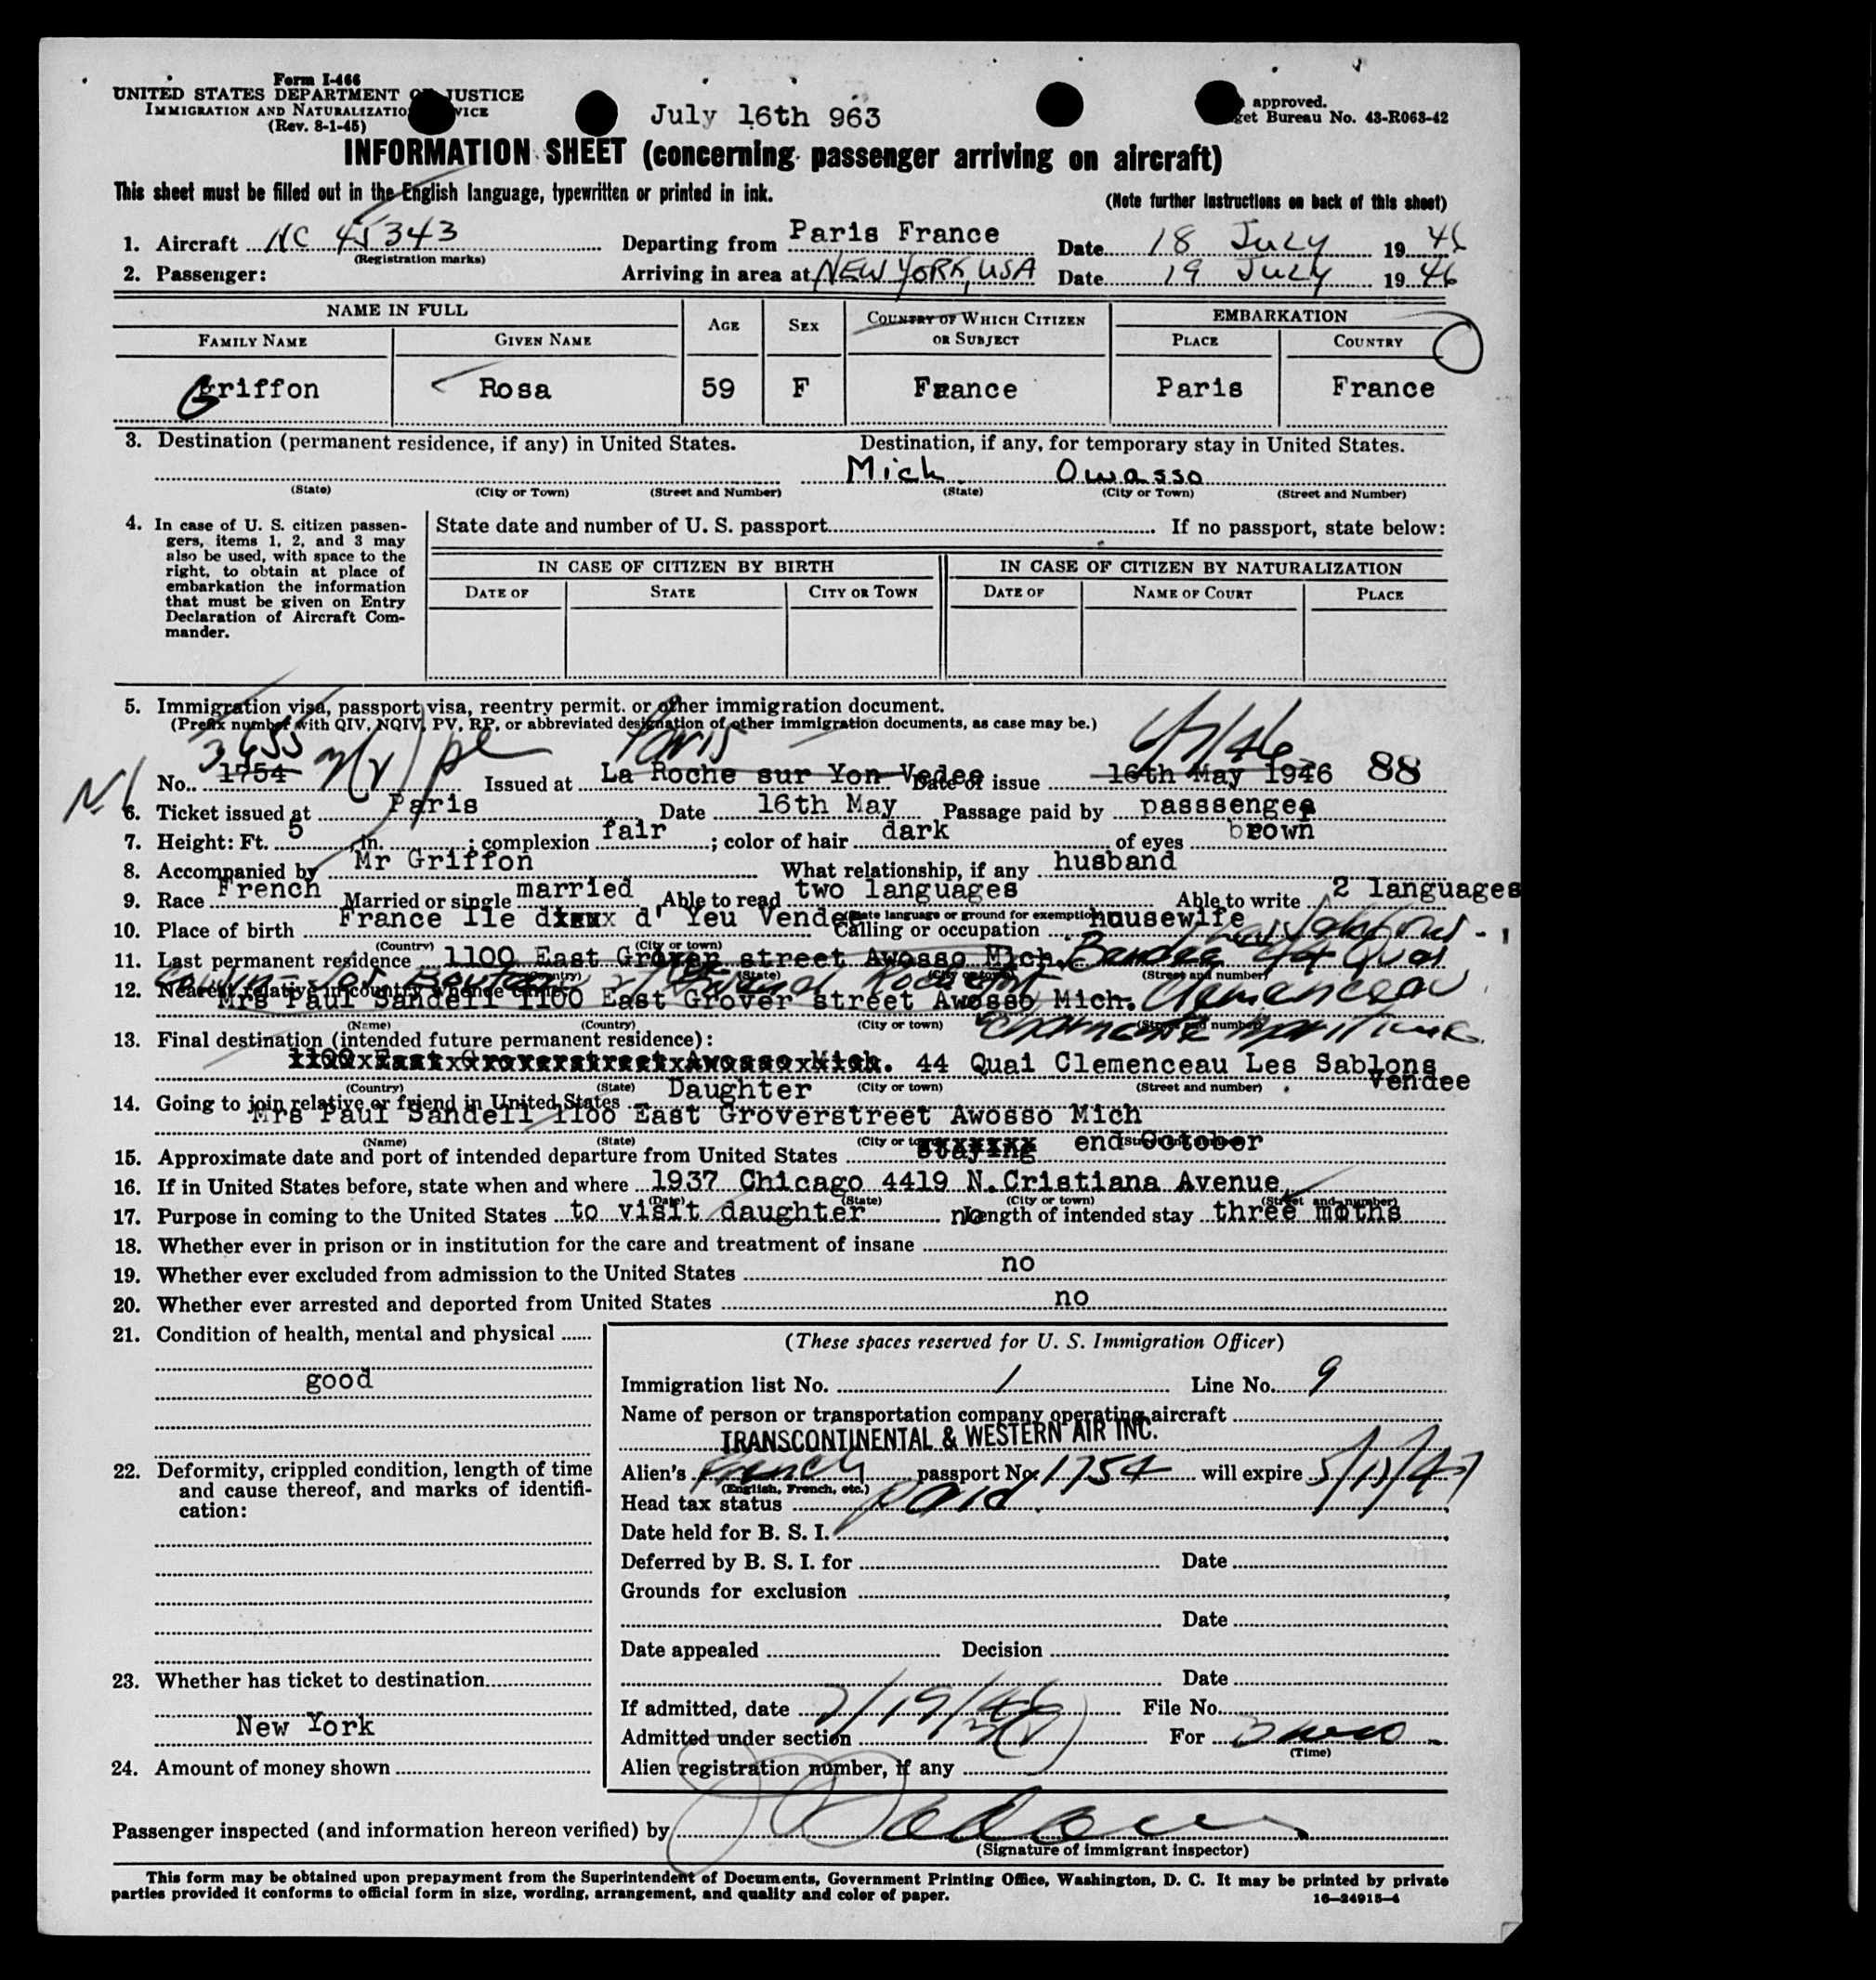 Form I-466
UNITED STATES DEPARTMENT OF JUSTICE
IMMIGRATION AND NATURALIZATION SERVICE
(Rev. 8-1-45)
July 16th 963
approved.
Budget Bureau No. 43-R063-42
INFORMATION SHEET (concerning passenger arriving on aircraft)
This sheet must be filled out in the English language, typewritten or printed in ink.
(Note further instructions on back of this sheet)
1. Aircraft NC 45343 Departing from Paris France Date 18 July 1946
(Registration marks)
2. Passenger: Arriving in area at NEW YORK, USA Date 19 July 1946
NAME IN FULL AGE SEX COUNTRY OF WHICH CITIZEN OR SUBJECT EMBARKATION
FAMILY NAME GIVEN NAME PLACE COUNTRY
Griffon Rosa 59 F France Paris France
3. Destination (permanent residence, if any) in United States. Destination, if any, for temporary stay in United States.
Mich Owasso
(State) (City or Town) (Street and Number) (State) (City or Town) (Street and Number)
4. In case of U. S. citizen passengers, items 1, 2, and 3 may also be used, with space to the right, to obtain at place of embarkation the information that must be given on Entry Declaration of Aircraft Commander.
State date and number of U. S. passport If no passport, state below:
IN CASE OF CITIZEN BY BIRTH IN CASE OF CITIZEN BY NATURALIZATION
DATE OF STATE CITY OR TOWN DATE OF NAME OF COURT PLACE
5. Immigration visa, passport visa, reentry permit. or other immigration document.
(Prefix number with QIV, NQIV, PV, RP, or abbreviated designation of other immigration documents, as case may be.)
3455 3(2) pl Paris 6/7/46
No. 1754 Issued at La Roche sur Yon Vedee Date of issue 16th May 1946 88
6. Ticket issued at Paris Date 16th May Passage paid by passsenger
7. Height: Ft. 5 , in. ; complexion fair ; color of hair dark of eyes brown
8. Accompanied by Mr Griffon What relationship, if any husband
9. Race French Married or single married Able to read two languages Able to write 2 languages
(State language or ground for exemption)
10. Place of birth France Ile d' Yeu Vendee Calling or occupation housewife
(Country) (City or town)
11. Last permanent residence 1100 East Grover street Awosso Mich. 44 Quai
(Country) (State) (City or town) (Street and number)
12. Nearest relative in country whence came
Mrs Paul Sandell 1100 East Grover street Awosso Mich. Clemenceau
(Name) (Country) (City or town) (Street and number)
13. Final destination (intended future permanent residence):
1100 East Groverstreet Awosso Mich. 44 Quai Clemenceau Les Sablons
Vendee
(Country) (State) (City or town) (Street and number)
14. Going to join relative or friend in United States Daughter
Mrs Paul Sandell 1100 East Groverstreet Awosso Mich
(Name) (State) (City or town) (Street and number)
15. Approximate date and port of intended departure from United States staying end October
16. If in United States before, state when and where 1937 Chicago 4419 N.Cristiana Avenue
(Date) (State) (City or town) (Street and number)
17. Purpose in coming to the United States to visit daughter Length of intended stay three moths
18. Whether ever in prison or in institution for the care and treatment of insane no
19. Whether ever excluded from admission to the United States no
20. Whether ever arrested and deported from United States no
21. Condition of health, mental and physical
good
22. Deformity, crippled condition, length of time and cause thereof, and marks of identification:
23. Whether has ticket to destination
New York
24. Amount of money shown
(These spaces reserved for U. S. Immigration Officer)
Immigration list No. 1 Line No. 9
Name of person or transportation company operating aircraft
TRANSCONTINENTAL & WESTERN AIR INC.
Alien's French passport No. 1754 will expire 5/15/47
(English, French, etc.)
Head tax status paid
Date held for B. S. I.
Deferred by B. S. I. for Date
Grounds for exclusion
Date
Date appealed Decision
Date
If admitted, date 7/19/46 File No.
Admitted under section 3(2) For 3 mos
(Time)
Alien registration number, if any
Passenger inspected (and information hereon verified) by
(Signature of immigrant inspector)
This form may be obtained upon prepayment from the Superintendent of Documents, Government Printing Office, Washington, D. C. It may be printed by private
parties provided it conforms to official form in size, wording, arrangement, and quality and color of paper.
16—24915-4